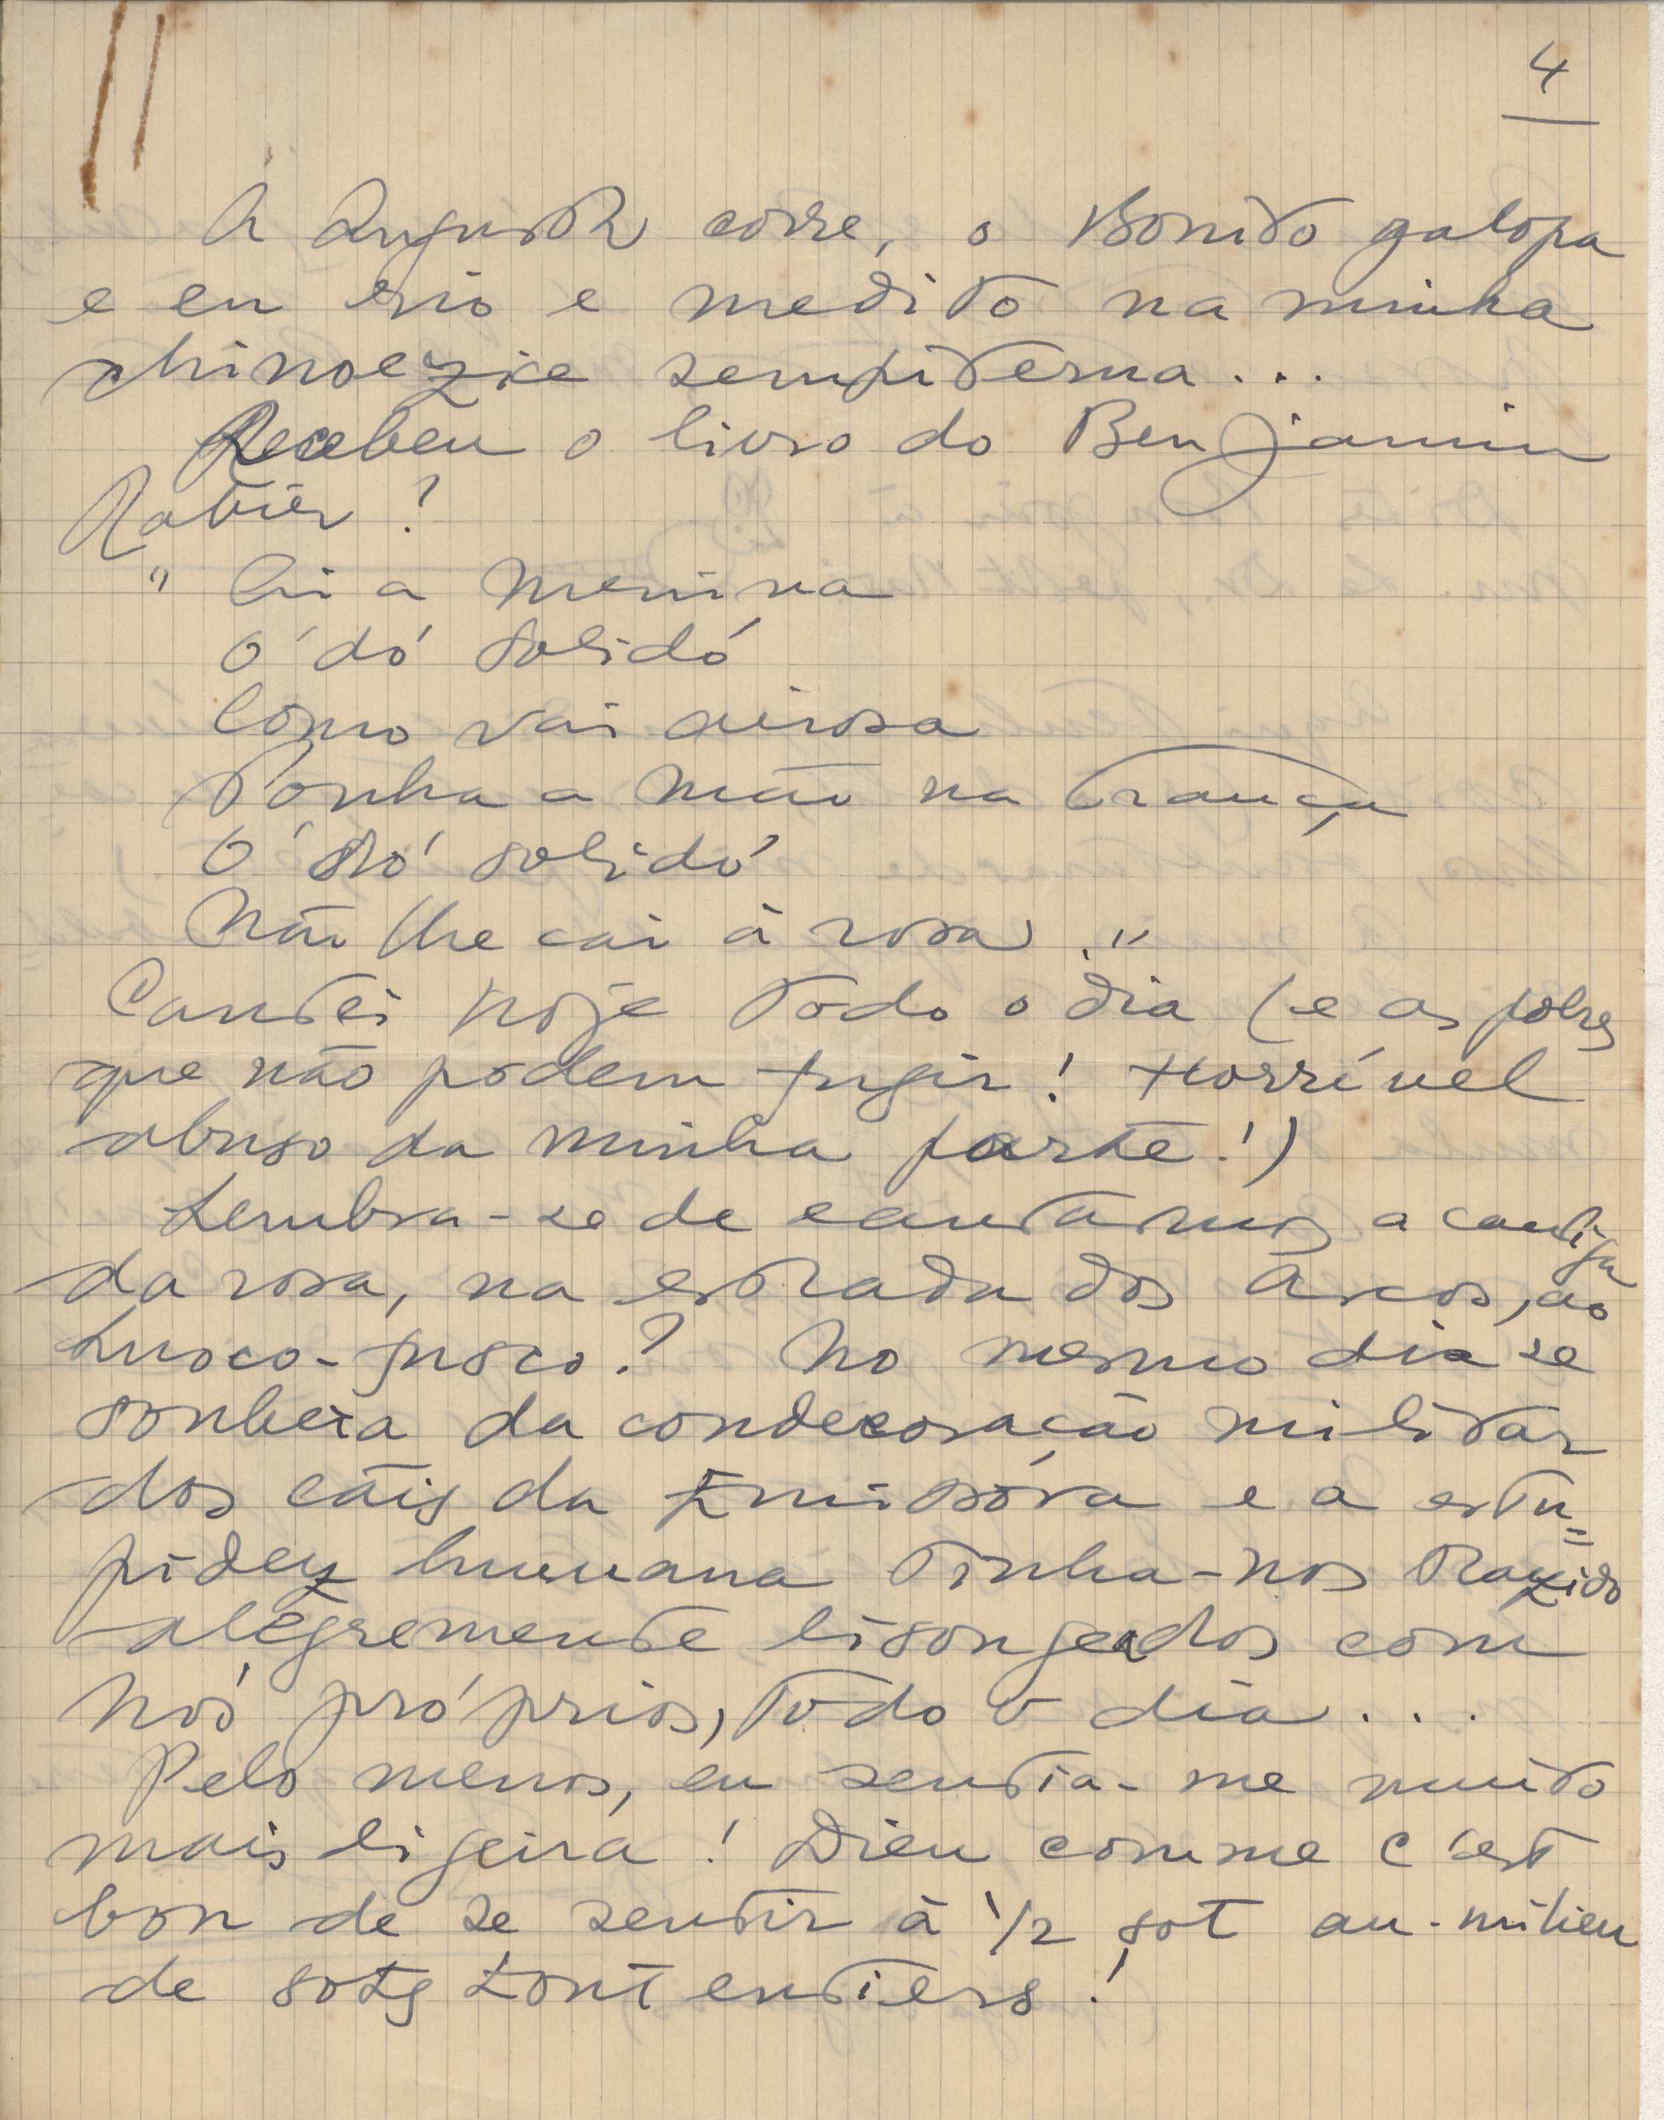 4
A Augusta corre, o Bonito galopa
e eu rio e medito na minha
chinoezice sempiterna...
Recebeu o livro do Benjamin
Rabier?
" Oi a menina
Ó dó solidó
Como vai airosa
Ponha a mão na trança
Ó dó solidó
Não lhe cai a rosa."
Cantei hoje todo o dia (e os pobres
que não podem fugir! Horrível
abuso da minha parte!)
Lembra-se de cantarmos a cantiga
da rosa, na estrada dos Arcos, ao
Lusco-fusco? No mesmo dia se
soubera da condecoração militar
dos cãis da Emissóra e a estu=
pidez humana tinha-nos trazido
alegremente lisongeados com
nós próprios, todo o dia...
Pelo menos, eu sentia-me muito
mais ligeira! Dieu comme c'est
bon de se sentir à 1/2 sot au-milieu
de sots tout entiers!